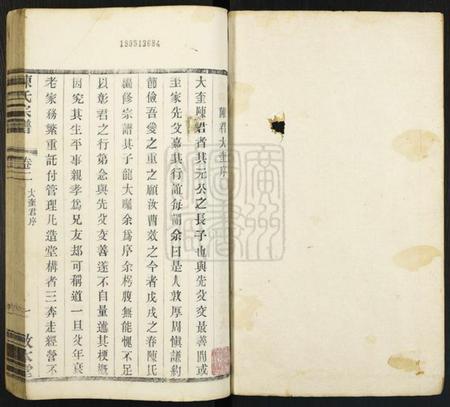 189513684
陳君大奎序
大奎陳君者其元公之長子也與先父交最善間或
至家先父嘉其行誼每謂余曰是人敦厚周愼謙約
節儉吾愛之重之願汝曹效之今者戊戌之春陳氏
纂修宗譜其子龍大囑余爲序余朽腹無能愧不足
以彰君之行第念與先父交善遂不自量述其梗概
因究其生平事親孝爲兄友却可稱道一旦父年衰
老家務繁重託付管理凡造堂構者三奔走經營不
陳氏宗譜
卷二
大奎君序
一
敦本堂